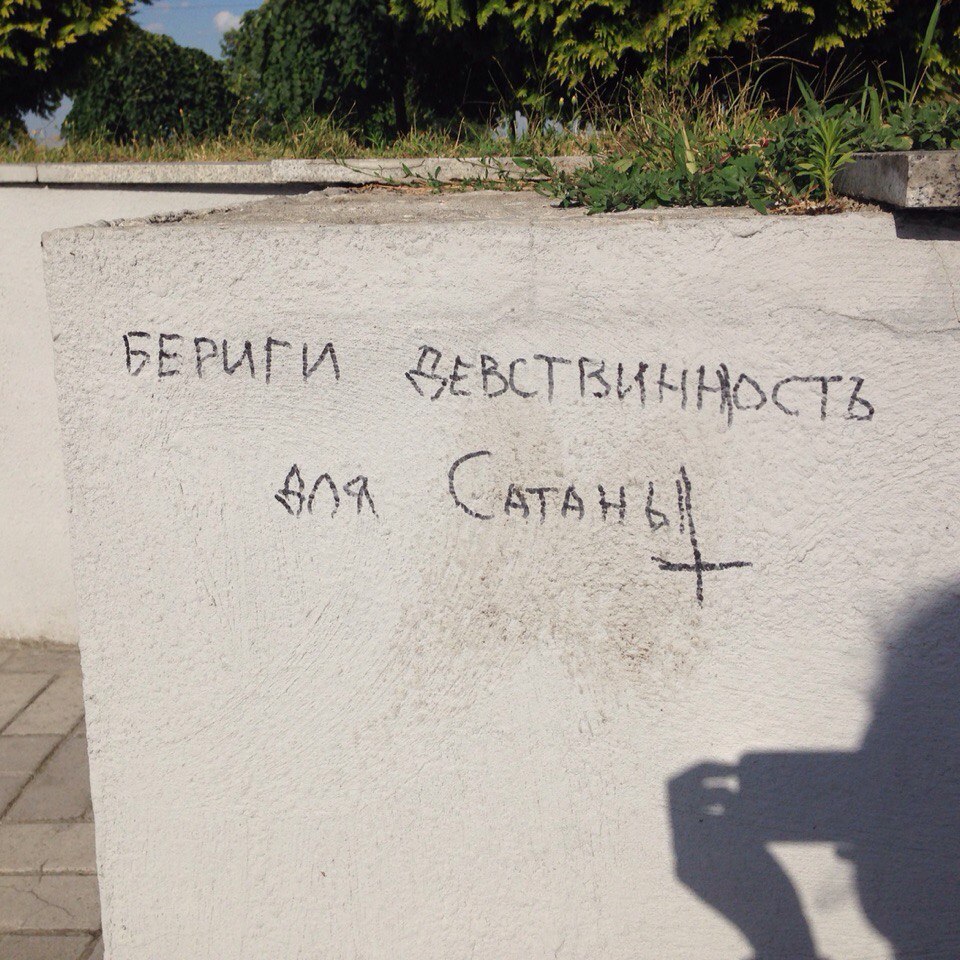 БЕРИГИ ДЕВСТВИННОСТЬ
ДЛЯ САТАНЫ